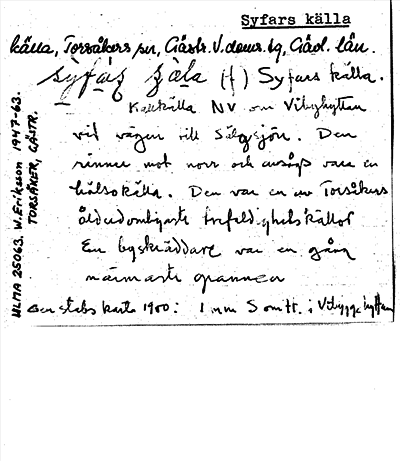 Syfars källa
källa, Torsåkers sn, Gästr. V. doms. tg, Gävl. län.
(f) Syfars källa.
Kallkälla NV om Vibyhyttan
vid vägen till Sälgsjön. Den
rinner mot norr och ansågs vara en
hälsokälla. Den var en av Torsåkers
ålderdomligaste trefaldighetskällor
En byskräddare var en gång
närmaste grannen
Gen stabs karta 1900: 1 mm S om tt. i Vibyggehyttan
ULMA 25063. W. Eriksson 1947-63.
TORSÅKER, GÄSTR.